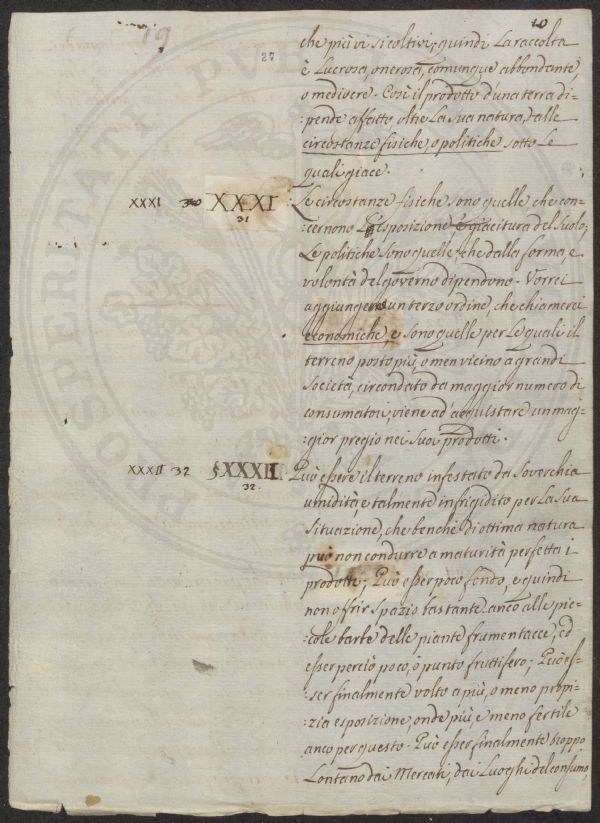 19
10
27
che più vi si coltivi, quindi la raccolta
è lucrosa, onerosa, comunque abbondante,
o mediocre. Così il prodotto d'una terra di-
:pende affatto oltre la sua natura, dalle
circostanze fisiche, o politiche sotto le
quali giace.
XXXI 30 XXXI
31
Le circostanze fisiche sono quelle che con-
:cernono l'esposizione e giacitura del suolo;
Le politiche sono quelle, che dalla forma, e
volontà del governo dipendono. Vorrei
aggiungere un terzo ordine, che chiamerei
economiche, e sono quelle per le quali il
terreno posto più, o men vicino a grandi
società, circondato da maggior numero di
consumatori, viene ad acquistare un mag-
:gior pregio nei suoi prodotti.
XXXII 32 §XXXII
32.
Può essere il terreno infestato da soverchia
umidità, e talmente infrigidito per la sua
situazione, che benchè di ottima natura
può non condurre a maturità perfetta i
prodotti; Può esser poco fondo, e quindi
non offrir spazio bastante anco alle pic-
:cole barbe delle piante frumentacee, ed
esser perciò poco, o punto fruttifero; Può es-
:ser finalmente volto a più, o meno propi-
:zia esposizione, onde più, e meno fertile
anco per questo. Può esser finalmente troppo
lontano dai Mercati, dai luoghi del consumo,